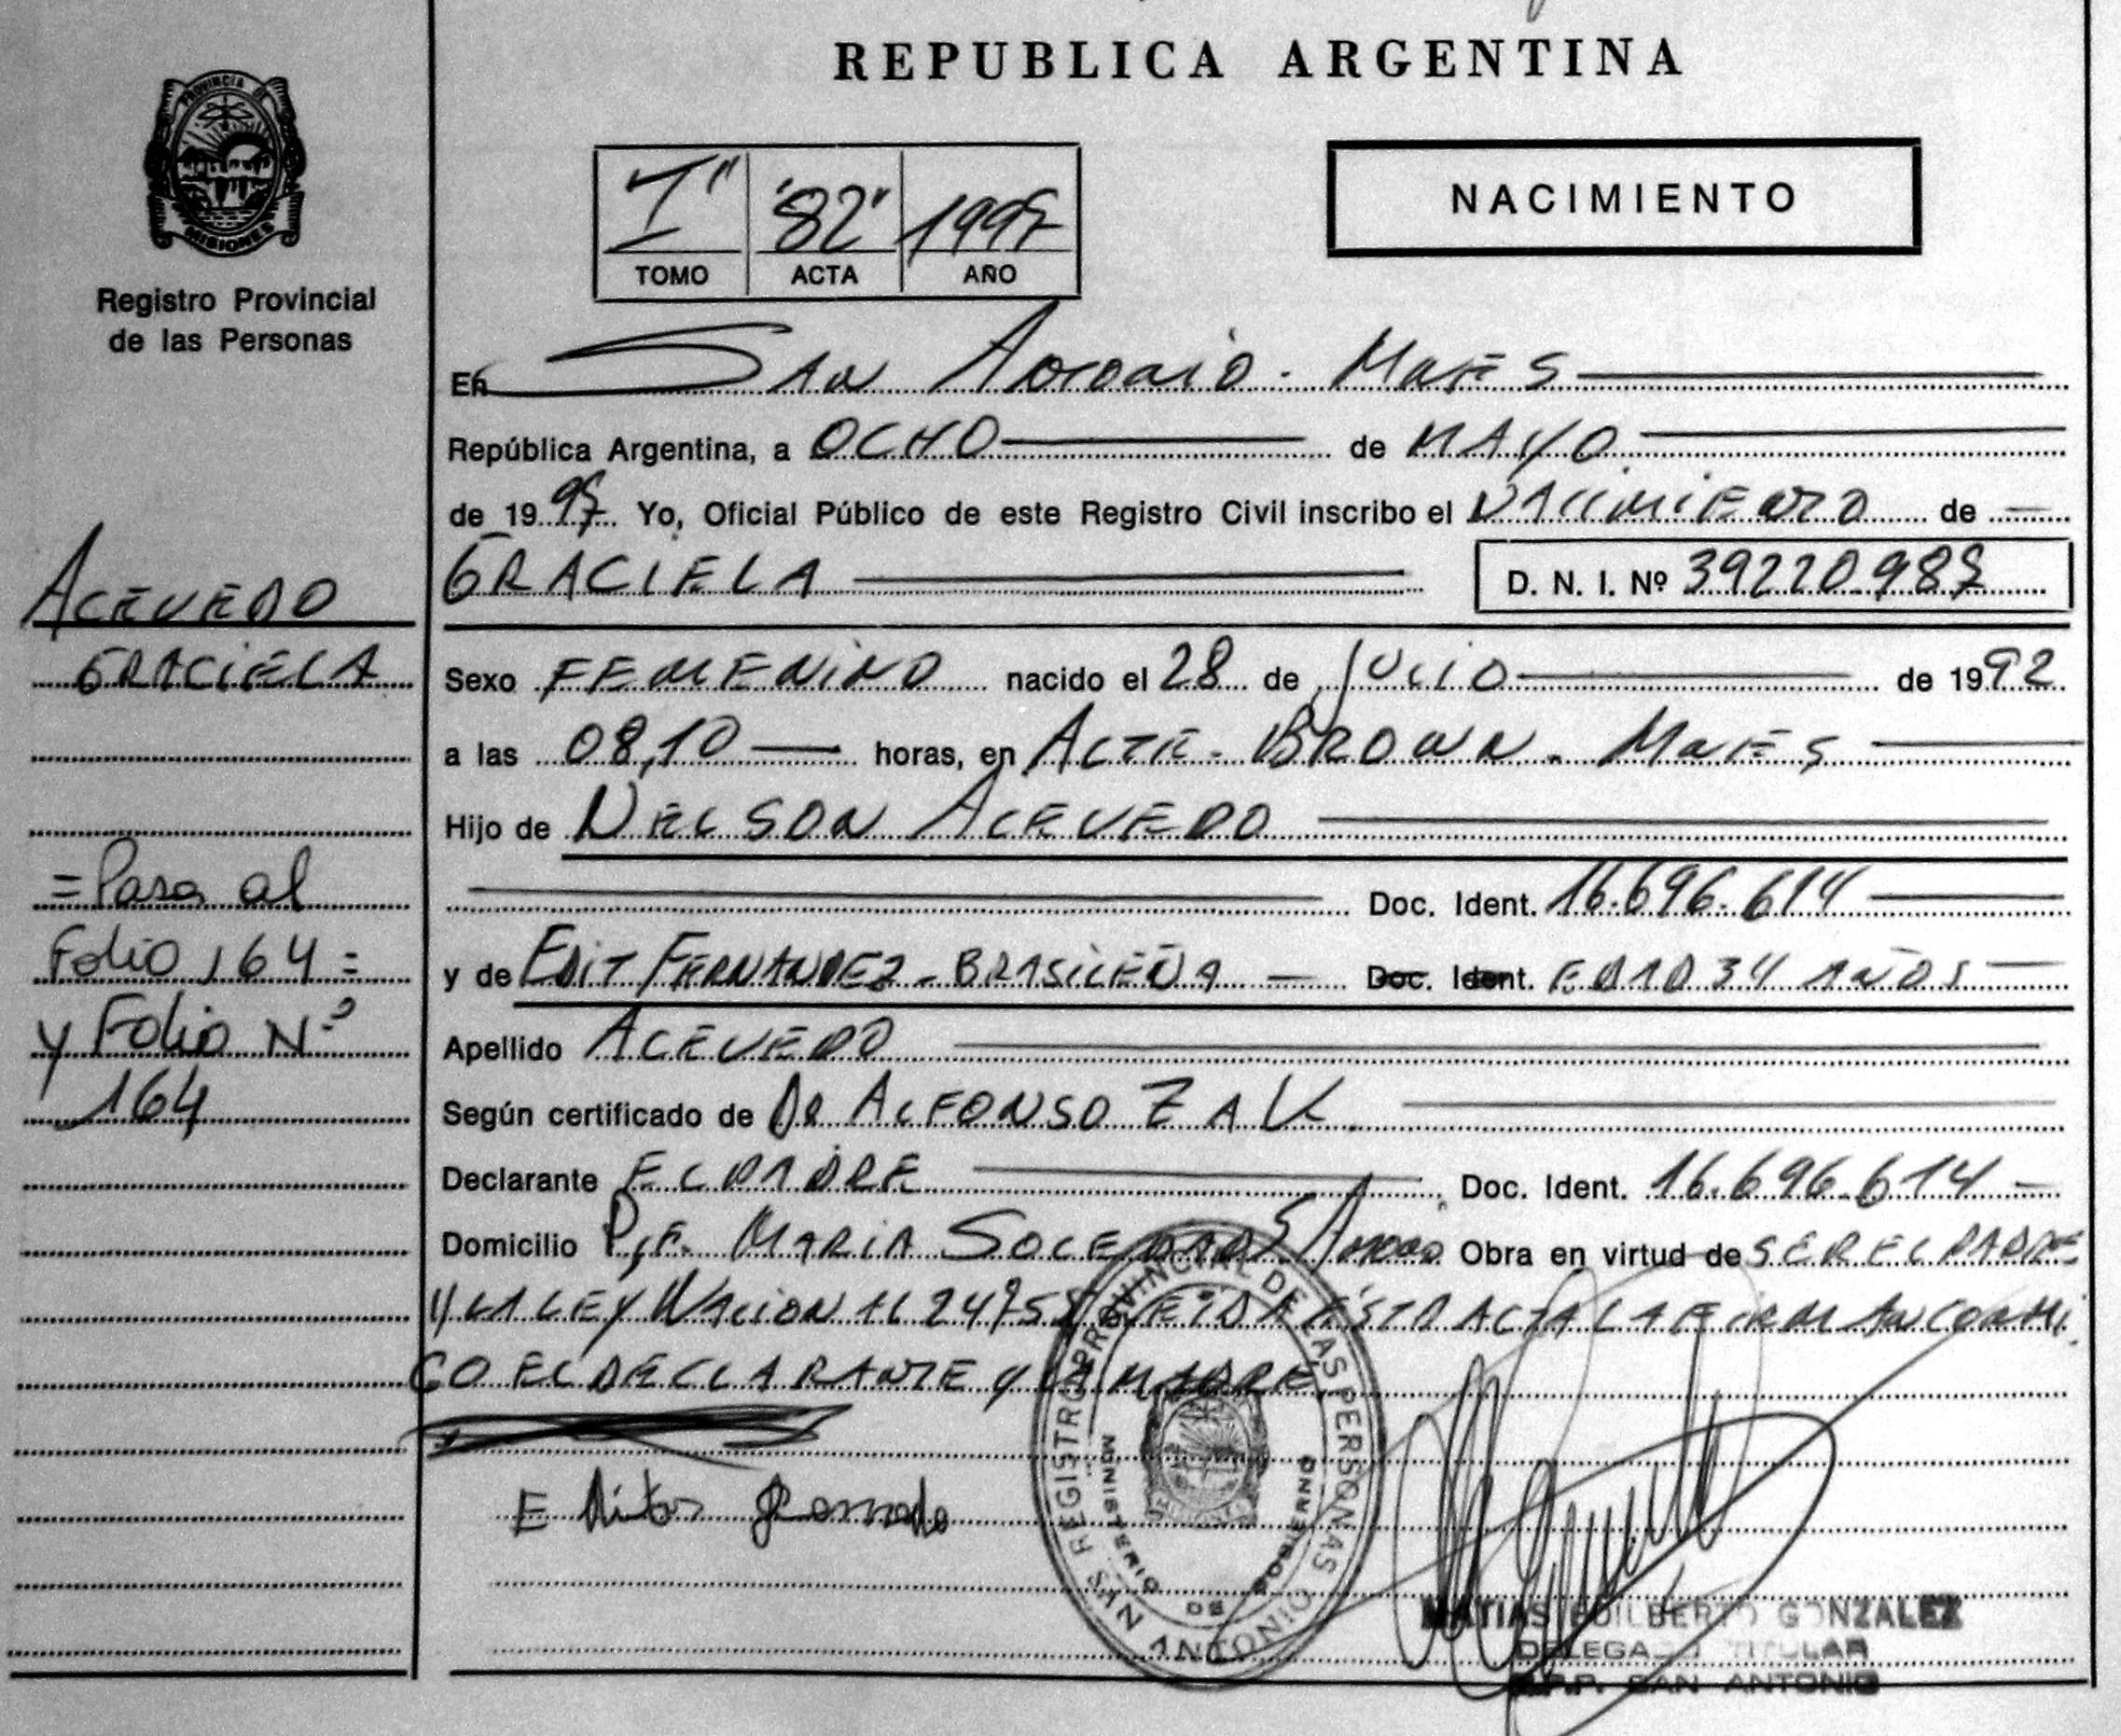 REPUBLICA ARGENTINA
PROVINCIA DE
MISIONES
Registro Provincial
de las Personas
I" "82" 1997
TOMO ACTA AÑO
NACIMIENTO
En SAN ANTONIO - MNES
República Argentina, a OCHO de MAYO
de 1997 Yo, Oficial Público de este Registro Civil inscribo el NACIMIENTO de
GRACIELA D. N. I. Nº 39220.987
ACEVEDO
GRACIELA
Sexo FEMENINO nacido el 28 de JULIO de 1992
a las 08,10 horas, en ALTE. BROWN - MNES
Hijo de NELSON ACEVEDO
Doc. Ident. 16.696.614
y de EDIT FERNANDEZ - BRASILEÑA Doc. Ident. EDAD 34 AÑOS
Apellido ACEVEDO
Según certificado de DR ALFONSO ZAUK
Declarante EL PADRE Doc. Ident. 16.696.614
Domicilio MARIA SOLEDAD Obra en virtud de SER EL PADRE
Y LA LEY NACIONAL LEIDA ESTA ACTA LA FIRMAN CONMI
GO EL DECLARANTE Y LA MADRE
=Pasa al
Folio 164=
y Folio Nº
164
REGISTRO PROVINCIAL DE LAS PERSONAS
MINISTERIO DE GOBIERNO
SAN ANTONIO
MATIAS EDILBERTO GONZALEZ
DELEGADO TITULAR
R.P.P. SAN ANTONIO